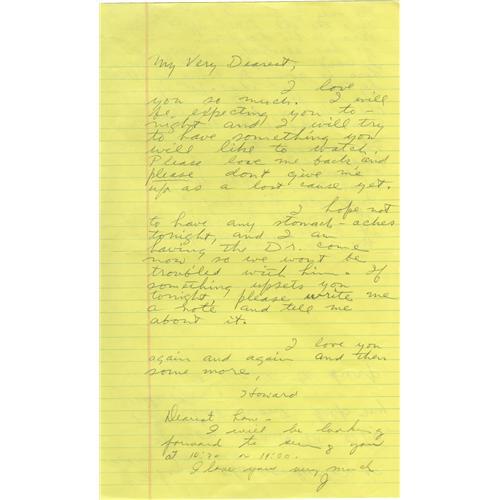 My Very Dearest,
I love
you so much. I will
be expecting you to-
night and I will try
to have something you
will like to watch.
Please love me back and
please don't give me
up as a lost cause yet.
I hope not
to have any stomach-aches
tonight, and I am
having the Dr. come
now, so we won't be
troubled with him. If
something upsets you
tonight, please write me
a note and tell me
about it.
I love you
again and again and then
some more,
Howard
Dearest
I will be looking
forward to seeing you
at 10:30 or 11:00.
I love you very much
J